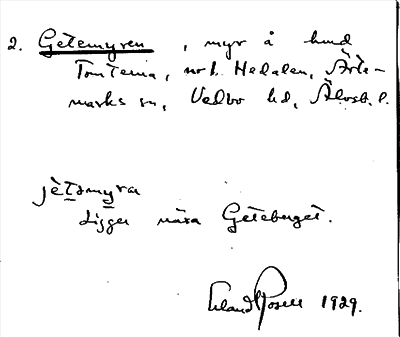 2. Getemyren, myr å hmd
Tomterna, no h. Hedalen, Ärte-
marks sn, Vedbo hd, Älvsb. l.
jètəmyra
Ligger nära Geteberget.
Erland Rosell 1929.